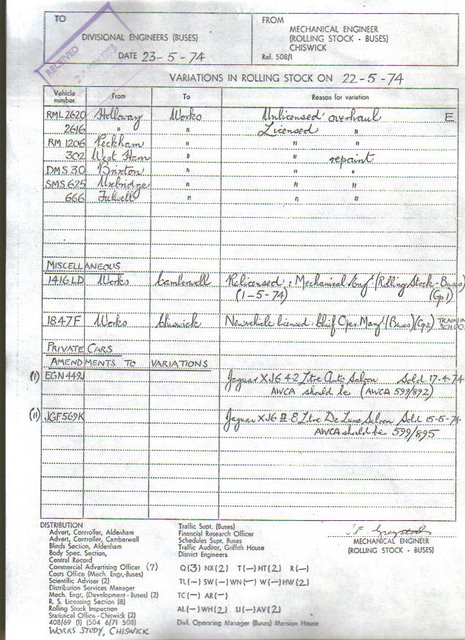 TO
FROM
DIVISIONAL ENGINEERS (BUSES)
MECHANICAL ENGINEER
(ROLLING STOCK - BUSES)
CHISWICK
DATE 23-5-74
Ref. 508/1
RECEIVED
VARIATIONS IN ROLLING STOCK ON 22-5-74
Vehicle number From To Reason for variation
RML 2620 Holloway Works Unlicensed overhaul E
2616 " " Licensed "
RM 1206 Peckham " " "
302 West Ham " " repaint
DMS 30 Brixton " " "
SMS 625 Uxbridge " " "
666 Fulwell " " "
MISCELLANEOUS
1416 LD Works Camberwell Relicensed : Mechanical Engr (Rolling Stock - Buses)
(1-5-74) (Gp1)
1847F Works Chiswick New vehicle licensed : Chief Oper. Mangr (Buses) (Gp2) TRAINING SCHOOL
PRIVATE CARS
AMENDMENTS TO VARIATIONS
(1) EGN 449J Jaguar XJ6 4.2 Litre Auto Saloon Sold 17-4-74
AWCA should be (AWCA 599/892)
(11) JGF 569K Jaguar XJ6 2.8 Litre De Luxe Saloon Sold 15-5-74
AWCA should be 599/895
MECHANICAL ENGINEER
(ROLLING STOCK - BUSES)
DISTRIBUTION
Advert, Controller, Aldenham
Advert, Controller, Camberwell
Blinds Section, Aldenham
Body Spec. Section,
Central Record
Commercial Advertising Officer (7)
Costs Office (Mech. Engr.-Buses)
Scientific Advisor (2)
Distribution Services Manager
Mech. Engr. (Development - Buses) (2)
R. S. Licensing Section (8)
Rolling Stock Inspection
Statistical Office - Chiswick (2)
408/69 (1) (504 6/71 508)
WORKS STUDY, CHISWICK
Traffic Supt. (Buses)
Financial Research Officer
Schedules Supt. Buses
Traffic Auditor, Griffith House
District Engineers
Q(3) NX(2) T(—) HT(2) R(—
TL(— SW(— WN(— W(— HW(2)
TC(— AR(—
AL(— WH(2) U(— AV(2)
Divl. Operating Manager (Buses) Mansion House